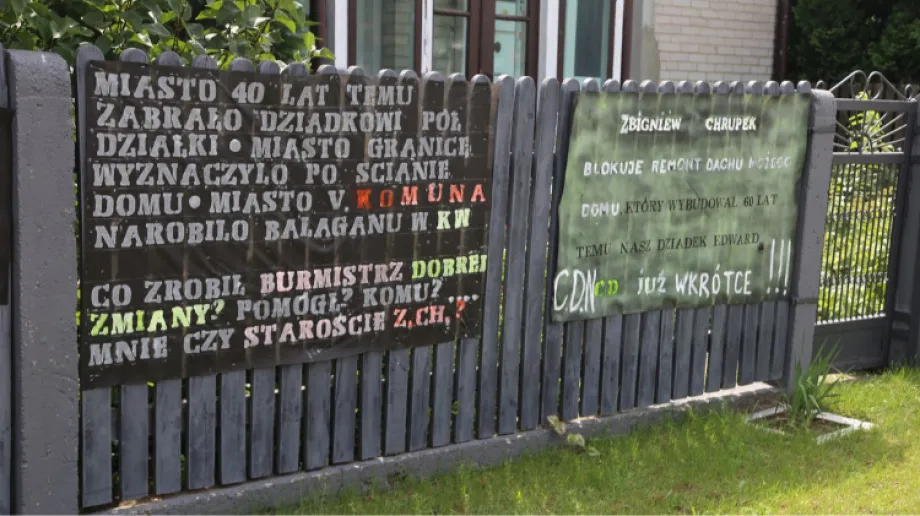 MIASTO 40 LAT TEMU
ZABRAŁO DZIADKOWI PÓŁ
DZIAŁKI • MIASTO GRANICĘ
WYZNACZYŁO PO ŚCIANIE
DOMU • MIASTO V. KOMUNA
NAROBIŁO BAŁAGANU W KW
CO ZROBIŁ BURMISTRZ DOBREJ
ZMIANY? POMÓGŁ? KOMU? ...
MNIE CZY STAROŚCIE Z.CH. ?
ZBIGNIEW CHRUPEK
BLOKUJE REMONT DACHU MOJEGO
DOMU, KTÓRY WYBUDOWAŁ 60 LAT
TEMU NASZ DZIADEK EDWARD.
C.D.N CD JUŻ WKRÓTCE !!!